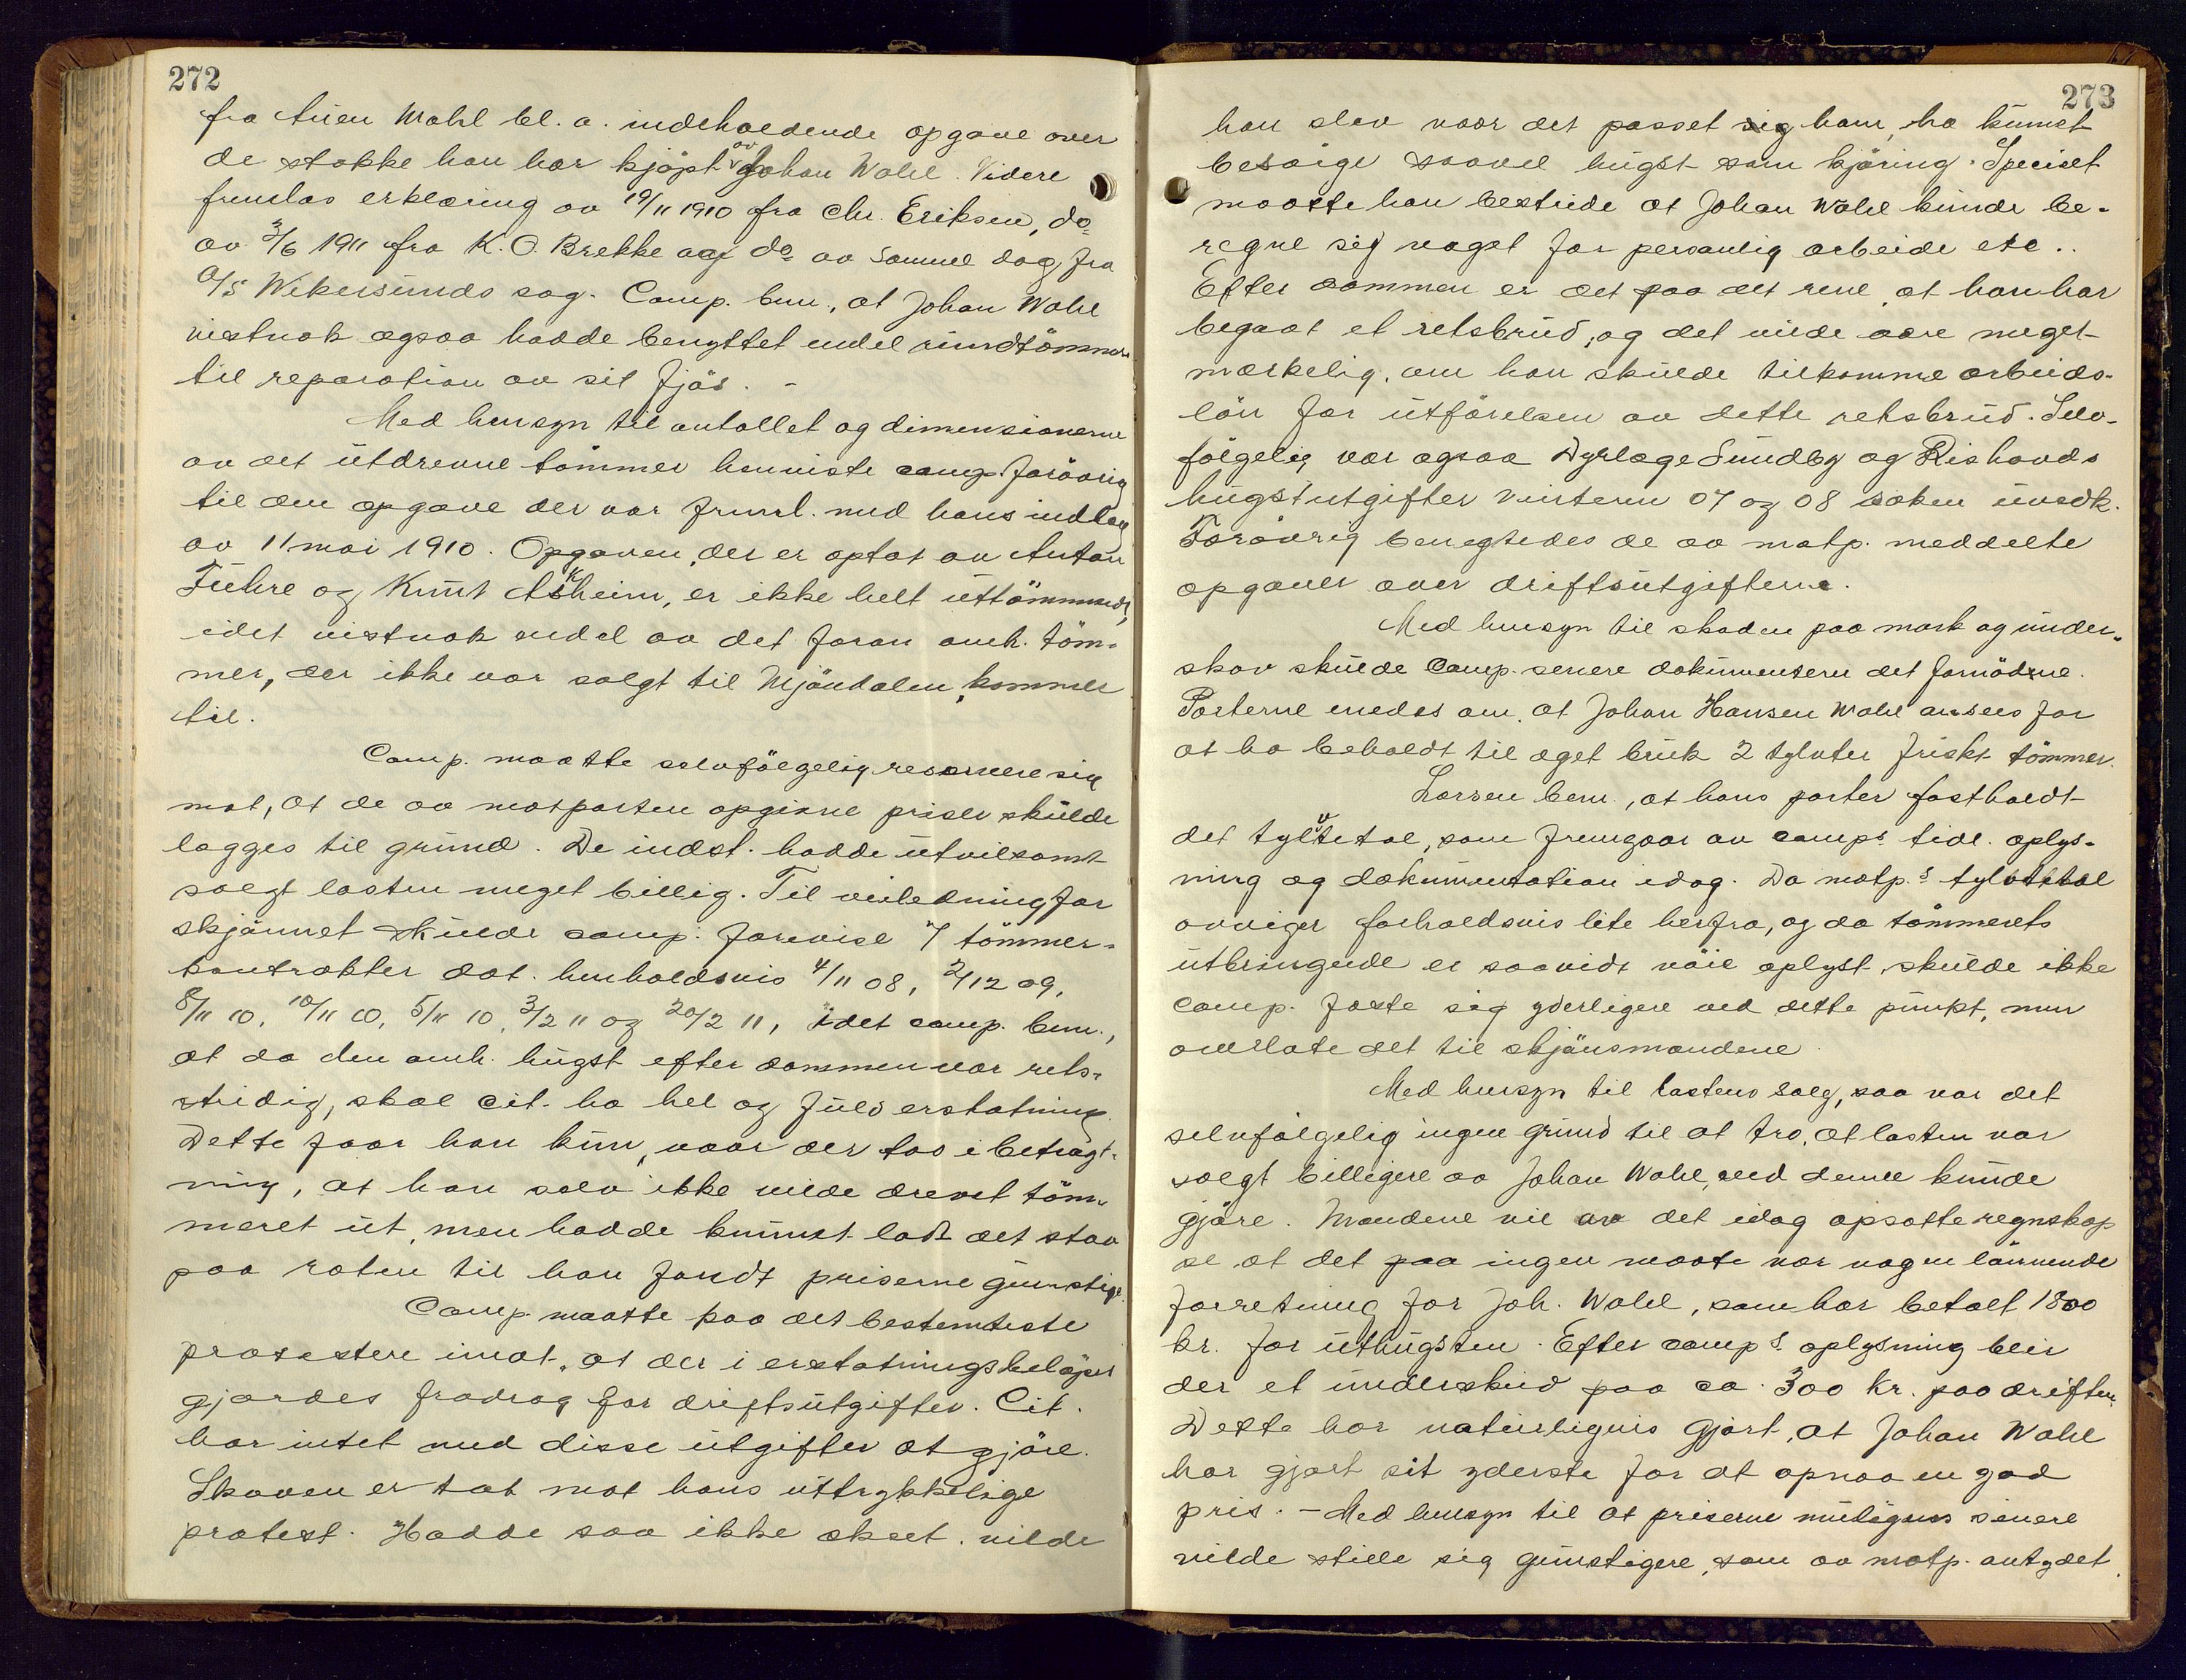 272
fra Auen Wahl bl. a. indeholdende opgave over
de stokke han har kjöpt av Johan Wahl. Videre
fremlas erklæring av 19/11 1910 fra Chr. Eriksen, do
av 3/6 1911 fra K. O. Brekke og do av samme dag fra
A/S Wikersunds sag. Comp. bem., at Johan Wahl
vistnok ogsaa hadde benyttet endel rundtömmer
til reparation av sit fjös. -
Med hensyn til antallet og dimensionerne
av det utdrevne tömmer henviste comp. forövrig
til den opgave der var fremL. med hans indlæg
av 11 mai 1910. Opgaven, der er optat av Anton
Fuhre og Knut Askheim, er ikke helt uttömmende,
idet vistnok endel av det foran omh. töm-
mer, der ikke var solgt til Mjöndalen, kommer
til.
Comp. maatte selvfölgelig reservere sig
mot, at de av motparten opgivne priser skulde
lægges til grund. De indst. hadde utvilsomt
solgt lasten meget billig. Til veiledning for
skjönnet skulde comp. forevise 7 tömmer-
kontrakter dat. henholdsvis 4/11 08, 2/12 09,
8/11 10, 10/11 10, 5/11 10, 3/2 11 og 20/2 11, idet comp. bem.,
at da den omh. hugst efter dommen var rets-
stridig, skal cit. ha hel og fuld erstatning.
Dette faar han kun, naar der tas i betragt-
ning, at han selv ikke vilde drevet töm-
meret ut, men hadde kunnet ladt det staa
paa roten til han fandt priserne gunstige.
Comp. maatte paa det bestemteste
protestere imot, at der i erstatningsbelöpet
gjordes fradrag for driftsutgifter. Cit.
har intet med disse utgifter at gjöre.
Skoven er tat mot hans uttrykkelige
protest. Hadde saa ikke skeet, vilde
273
han selv naar det passet sig ham, ha kunnet
besörge saavel hugst som kjöring. Specielt
maatte han bestride at Johan Wahl kunde be-
regne sig noget for personlig arbeide etc..
Efter dommen er det paa det rene, at han har
begaat et retsbrud, og det vilde være meget
merkelig, om han skulde tilkomme arbeids-
lön for utförelsen av dette retsbrud. Selv-
fölgelig var ogsaa Dyrlæge Sundby og Rishovds
hugstutgifter vinteren 07 og 08 saken uvedk.
Forövrig benegtedes de av motp. meddelte
opgaver over driftsutgifterne.
Med hensyn til skaden paa mark og under-
skov skulde Comp. senere dokumentere det fornödne.
Parterne enedes om, at Johan Hansen Wahl ansees for
at ha beholdt til eget bruk 2 tylvter friskt tömmer.
Larsen bem., at hans parter fastholdt
det tylvtetal, som fremgaar av comps. tidl. oplys-
ning og dokumentation idag. Da motp.s tylvtetal
avviger forholdsvis lite herfra, og da tömmerets
utbringende er saavidt nöie oplyst, skulde ikke
comp. feste sig yderligere ved dette punkt, men
overlate det til skjönsmændene.
Med hensyn til lastens salg, saa var det
selvfölgelig ingen grund til at tro, at lasten var
solgt billigere av Johan Wahl, end denne kunde
gjöre. Mændene vil av det idag opsatte regnskap
se at det paa ingen maate var nogen lönnende
forretning for Joh. Wahl, som har betalt 1800
kr. for uthugsten. Efter comps. oplysning blir
der et underskud paa ca. 300 kr. paa driften.
Dette har naturligvis gjort, at Johan Wahl
har gjort sit yderste for at opnaa en god
pris. - Med hensyn til at priserne muligens senere
vilde stille sig gunstigere, som av motp. antydet,